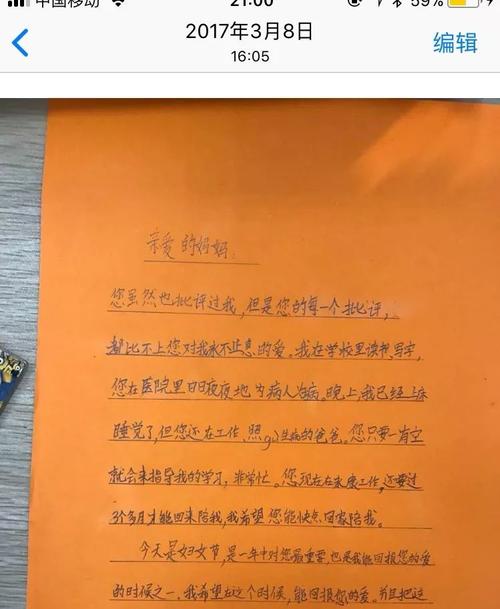 中国移动 21:00 59%
2017年3月8日
16:05
编辑
亲爱的妈妈：
您虽然也批评过我，但是您的每一个批评，
都比不上您对我永不止息的爱。我在学校里读书，写字，
您在医院里日日夜夜地为病人治病。晚上，我已经
睡觉了，但您还在工作、照gù生病的爸爸。您只要一有空
就会来指导我的学习，非常忙。您现在在来康工作，还要过
3个多月才能回来陪我，我希望您能快点回家陪我。
今天是妇女节，是一年中对您最重要，也是我能回报您的爱
的时候之一，我希望在这个时候，能回报您的爱。并且把这